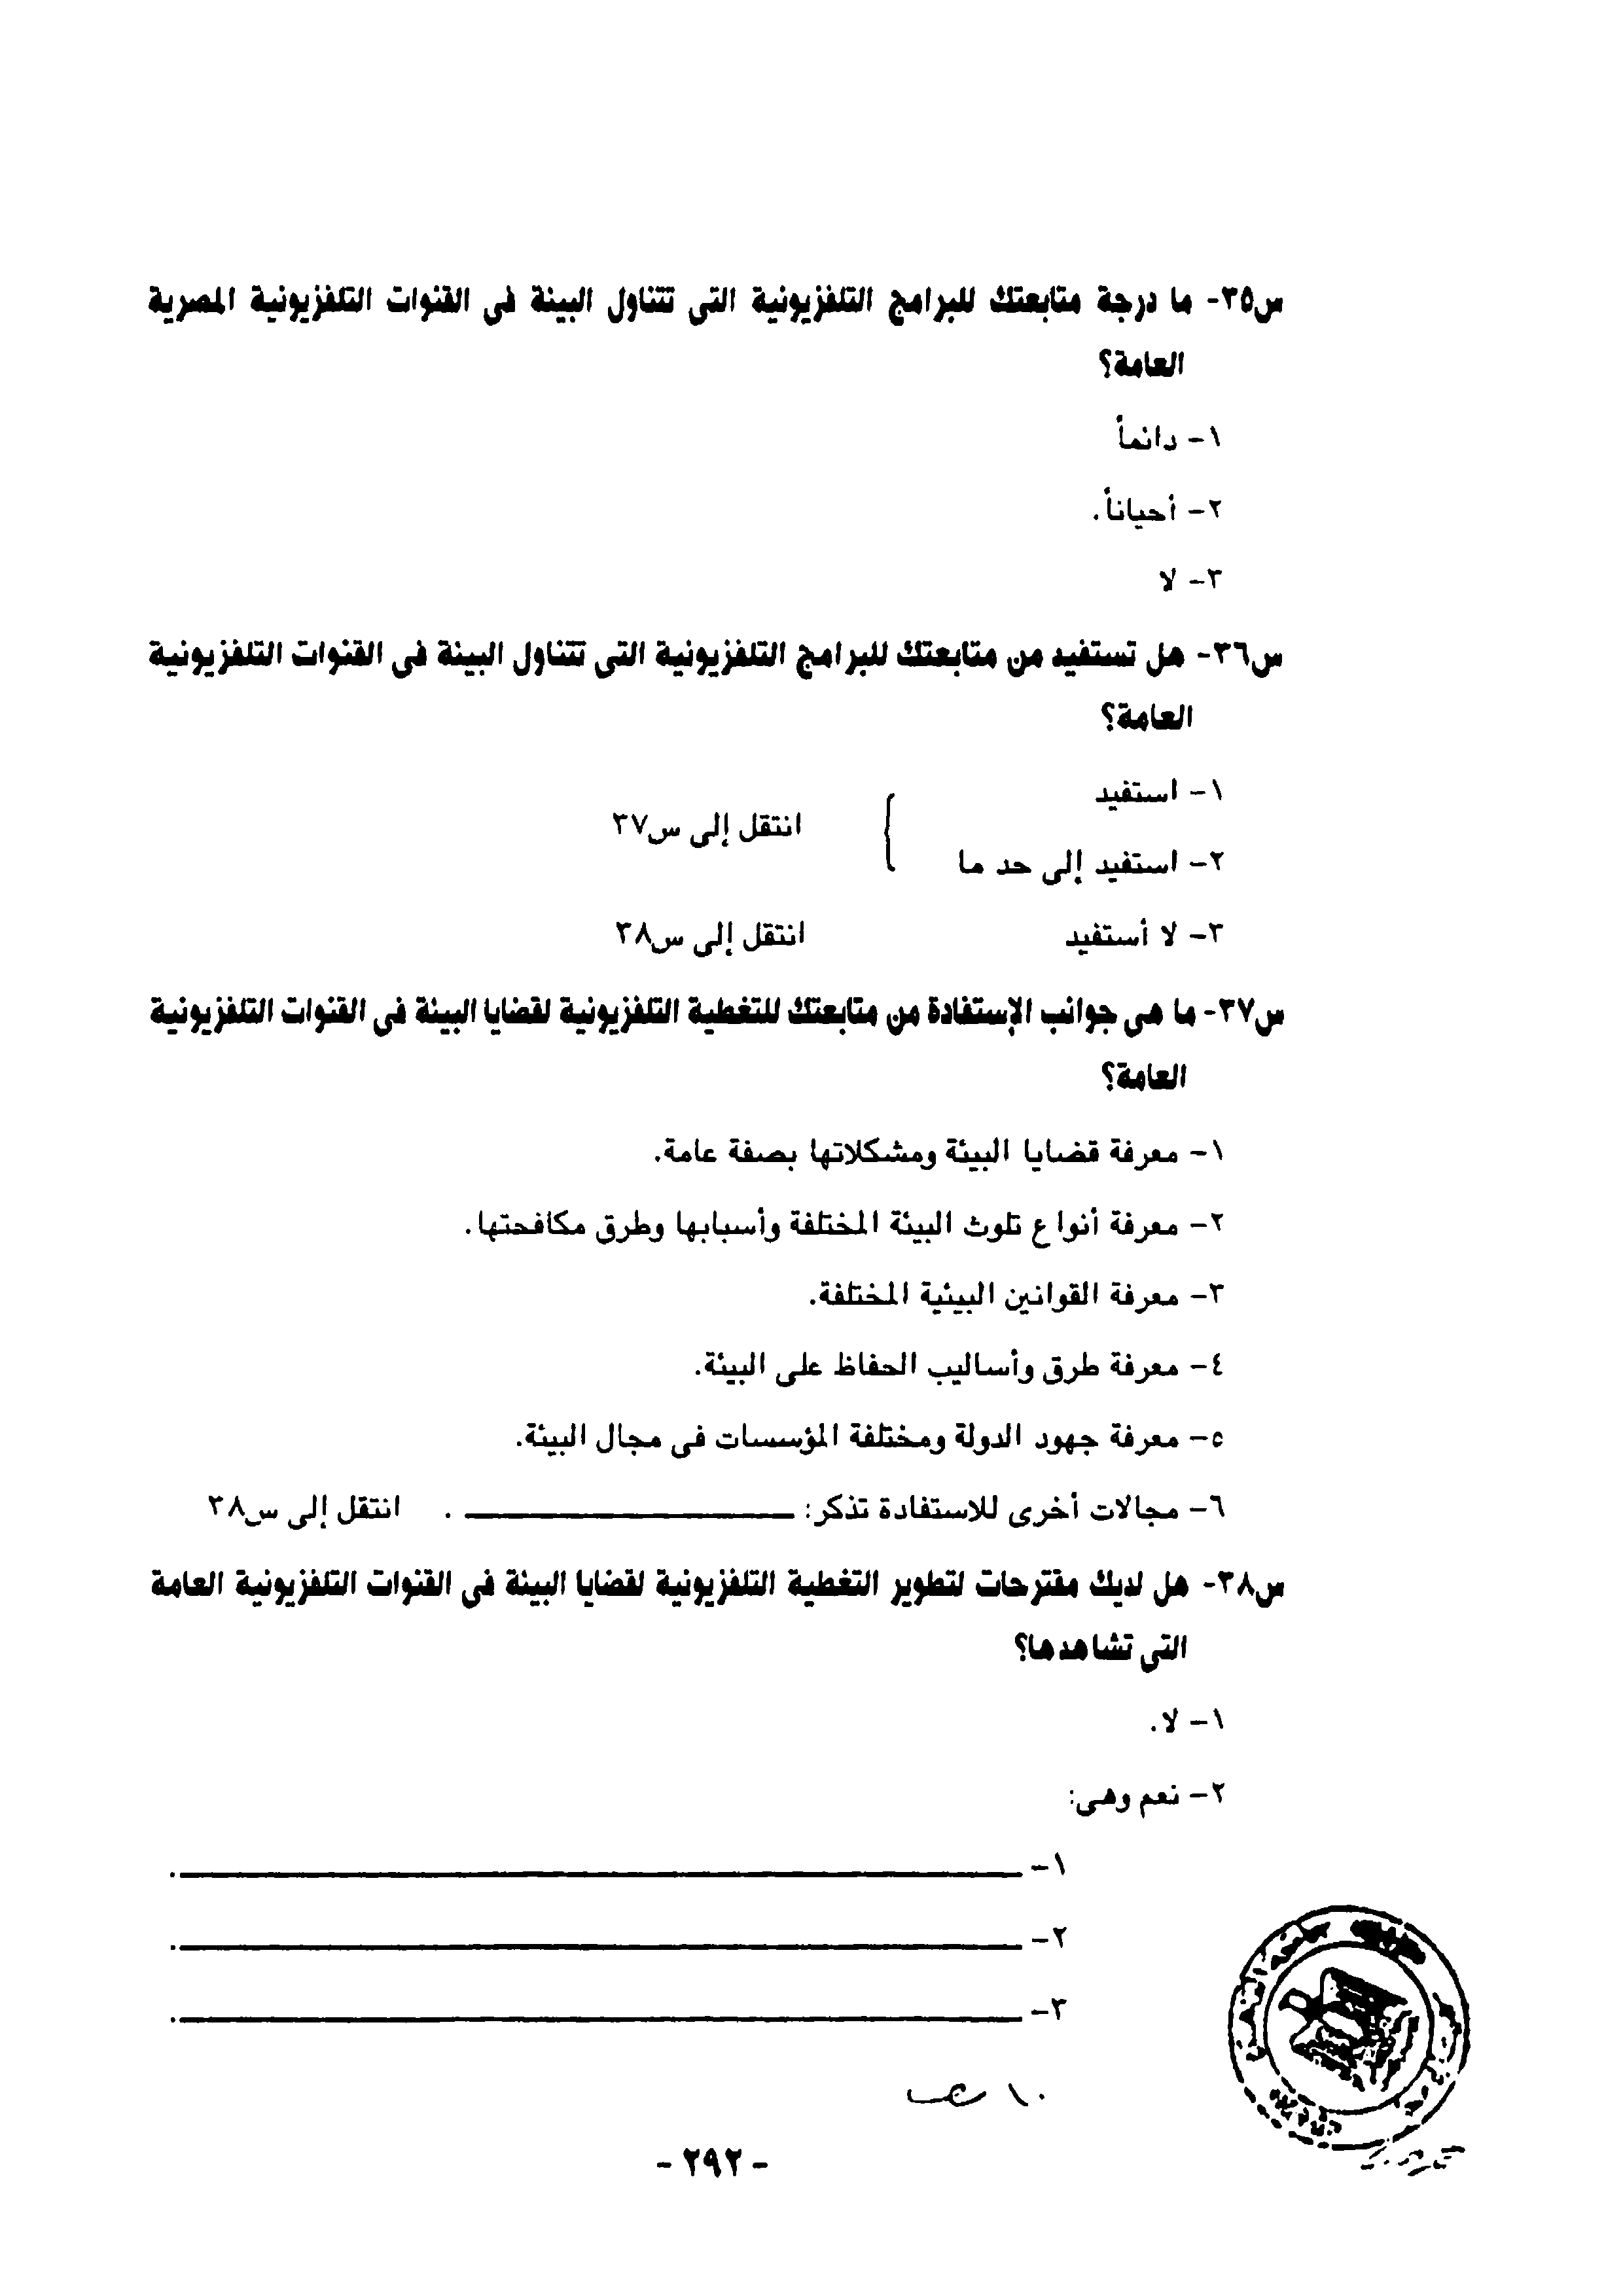 س٣٥- ما درجة متابعتك للبرامج التلفزيونية التى تتناول البيئة فى القنوات التلفزيونية المصرية
العامة؟
١- دائماً
٢- أحياناً.
٣- لا
س٣٦- هل تستفيد من متابعتك للبرامج التلفزيونية التى تتناول البيئة فى القنوات التلفزيونية
العامة؟
١- استفيد
انتقل إلى س٣٧
٢- استفيد إلى حد ما
٣- لا أستفيد انتقل إلى س٣٨
س٣٧- ما هى جوانب الإستفادة من متابعتك للتغطية التلفزيونية لقضايا البيئة فى القنوات التلفزيونية
العامة؟
١- معرفة قضايا البيئة ومشكلاتها بصفة عامة.
٢- معرفة أنواع تلوث البيئة المختلفة وأسبابها وطرق مكافحتها.
٣- معرفة القوانين البيئية المختلفة.
٤- معرفة طرق وأساليب الحفاظ على البيئة.
٥- معرفة جهود الدولة ومختلفة المؤسسات فى مجال البيئة.
٦- مجالات أخرى للاستفادة تذكر: ــــــــــــــــ . انتقل إلى س٣٨
س٣٨- هل لديك مقترحات لتطوير التغطية التلفزيونية لقضايا البيئة فى القنوات التلفزيونية العامة
التى تشاهدها؟
١- لا.
٢- نعم وهى:
١- ــــــــــــــــــــــــــــــــ.
٢- ــــــــــــــــــــــــــــــــ.
٣- ــــــــــــــــــــــــــــــــ.
- ٢٩٢ -